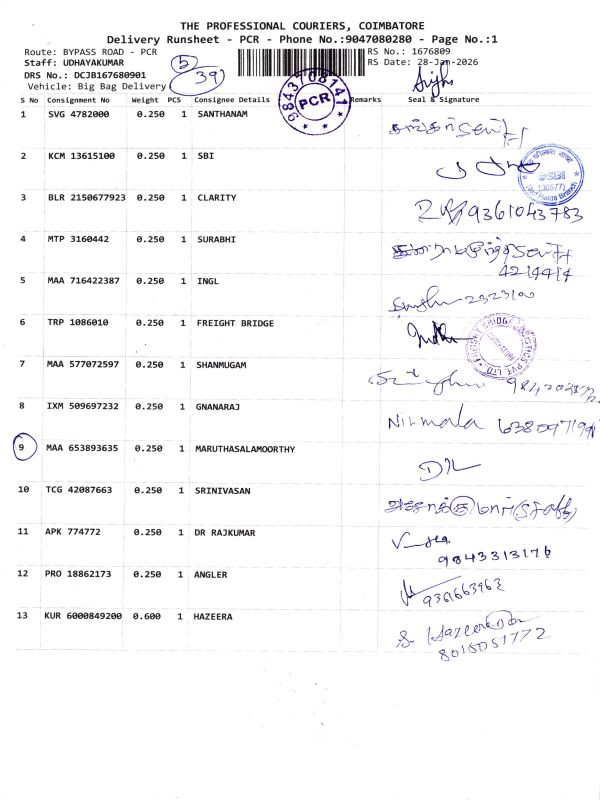 THE PROFESSIONAL COURIERS, COIMBATORE
Delivery Runsheet - PCR - Phone No.:9047080280 - Page No.:1
Route: BYPASS ROAD - PCR RS No.: 1676809
Staff: UDHAYAKUMAR 5 RS Date: 28-Jan-2026
DRS No.: DCJB167680901 39
Vehicle: Big Bag Delivery
9843708141
PCR
S No Consignment No Weight PCS Consignee Details Remarks Seal & Signature
1 SVG 4782000 0.250 1 SANTHANAM
2 KCM 13615100 0.250 1 SBI
SBI
3 BLR 2150677923 0.250 1 CLARITY 9361043783
4 MTP 3160442 0.250 1 SURABHI
4214414
5 MAA 716422387 0.250 1 INGL
6 TRP 1086010 0.250 1 FREIGHT BRIDGE
7 MAA 577072597 0.250 1 SHANMUGAM
8 IXM 509697232 1 GNANARAJ Nirmala
9 MAA 653893635 0.250 1 MARUTHASALAMOORTHY
10 TCG 42087663 0.250 1 SRINIVASAN
11 APK 774772 0.250 1 DR RAJKUMAR
9843313176
12 PRO 18862173 0.250 1 ANGLER
9361663963
13 KUR 6000849200 0.600 1 HAZEERA
8015051772